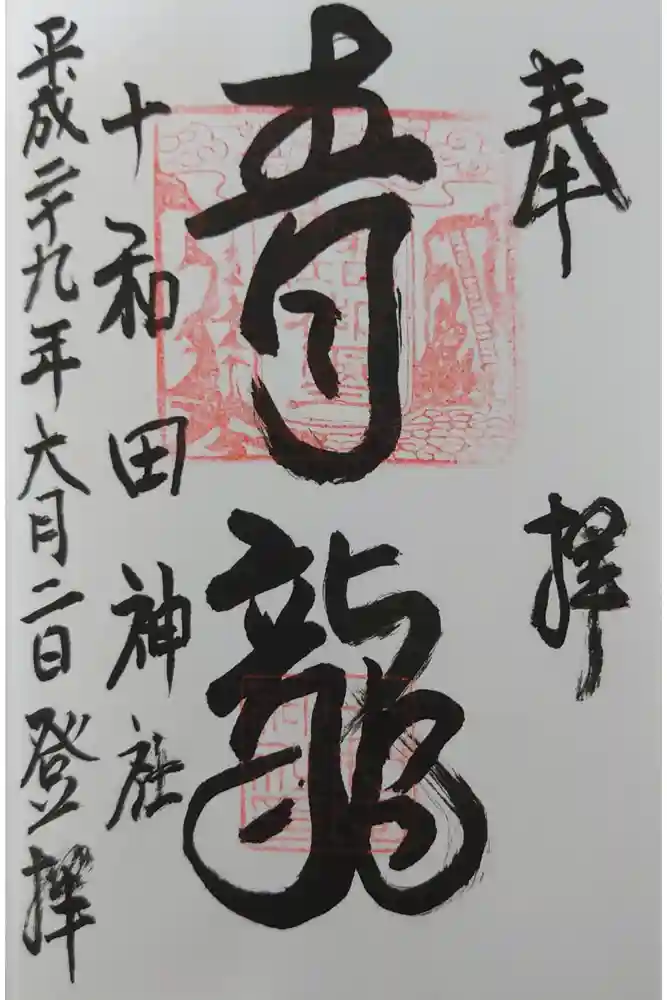 奉拝
青龍
十和田神社
平成二十九年六月二日登拝